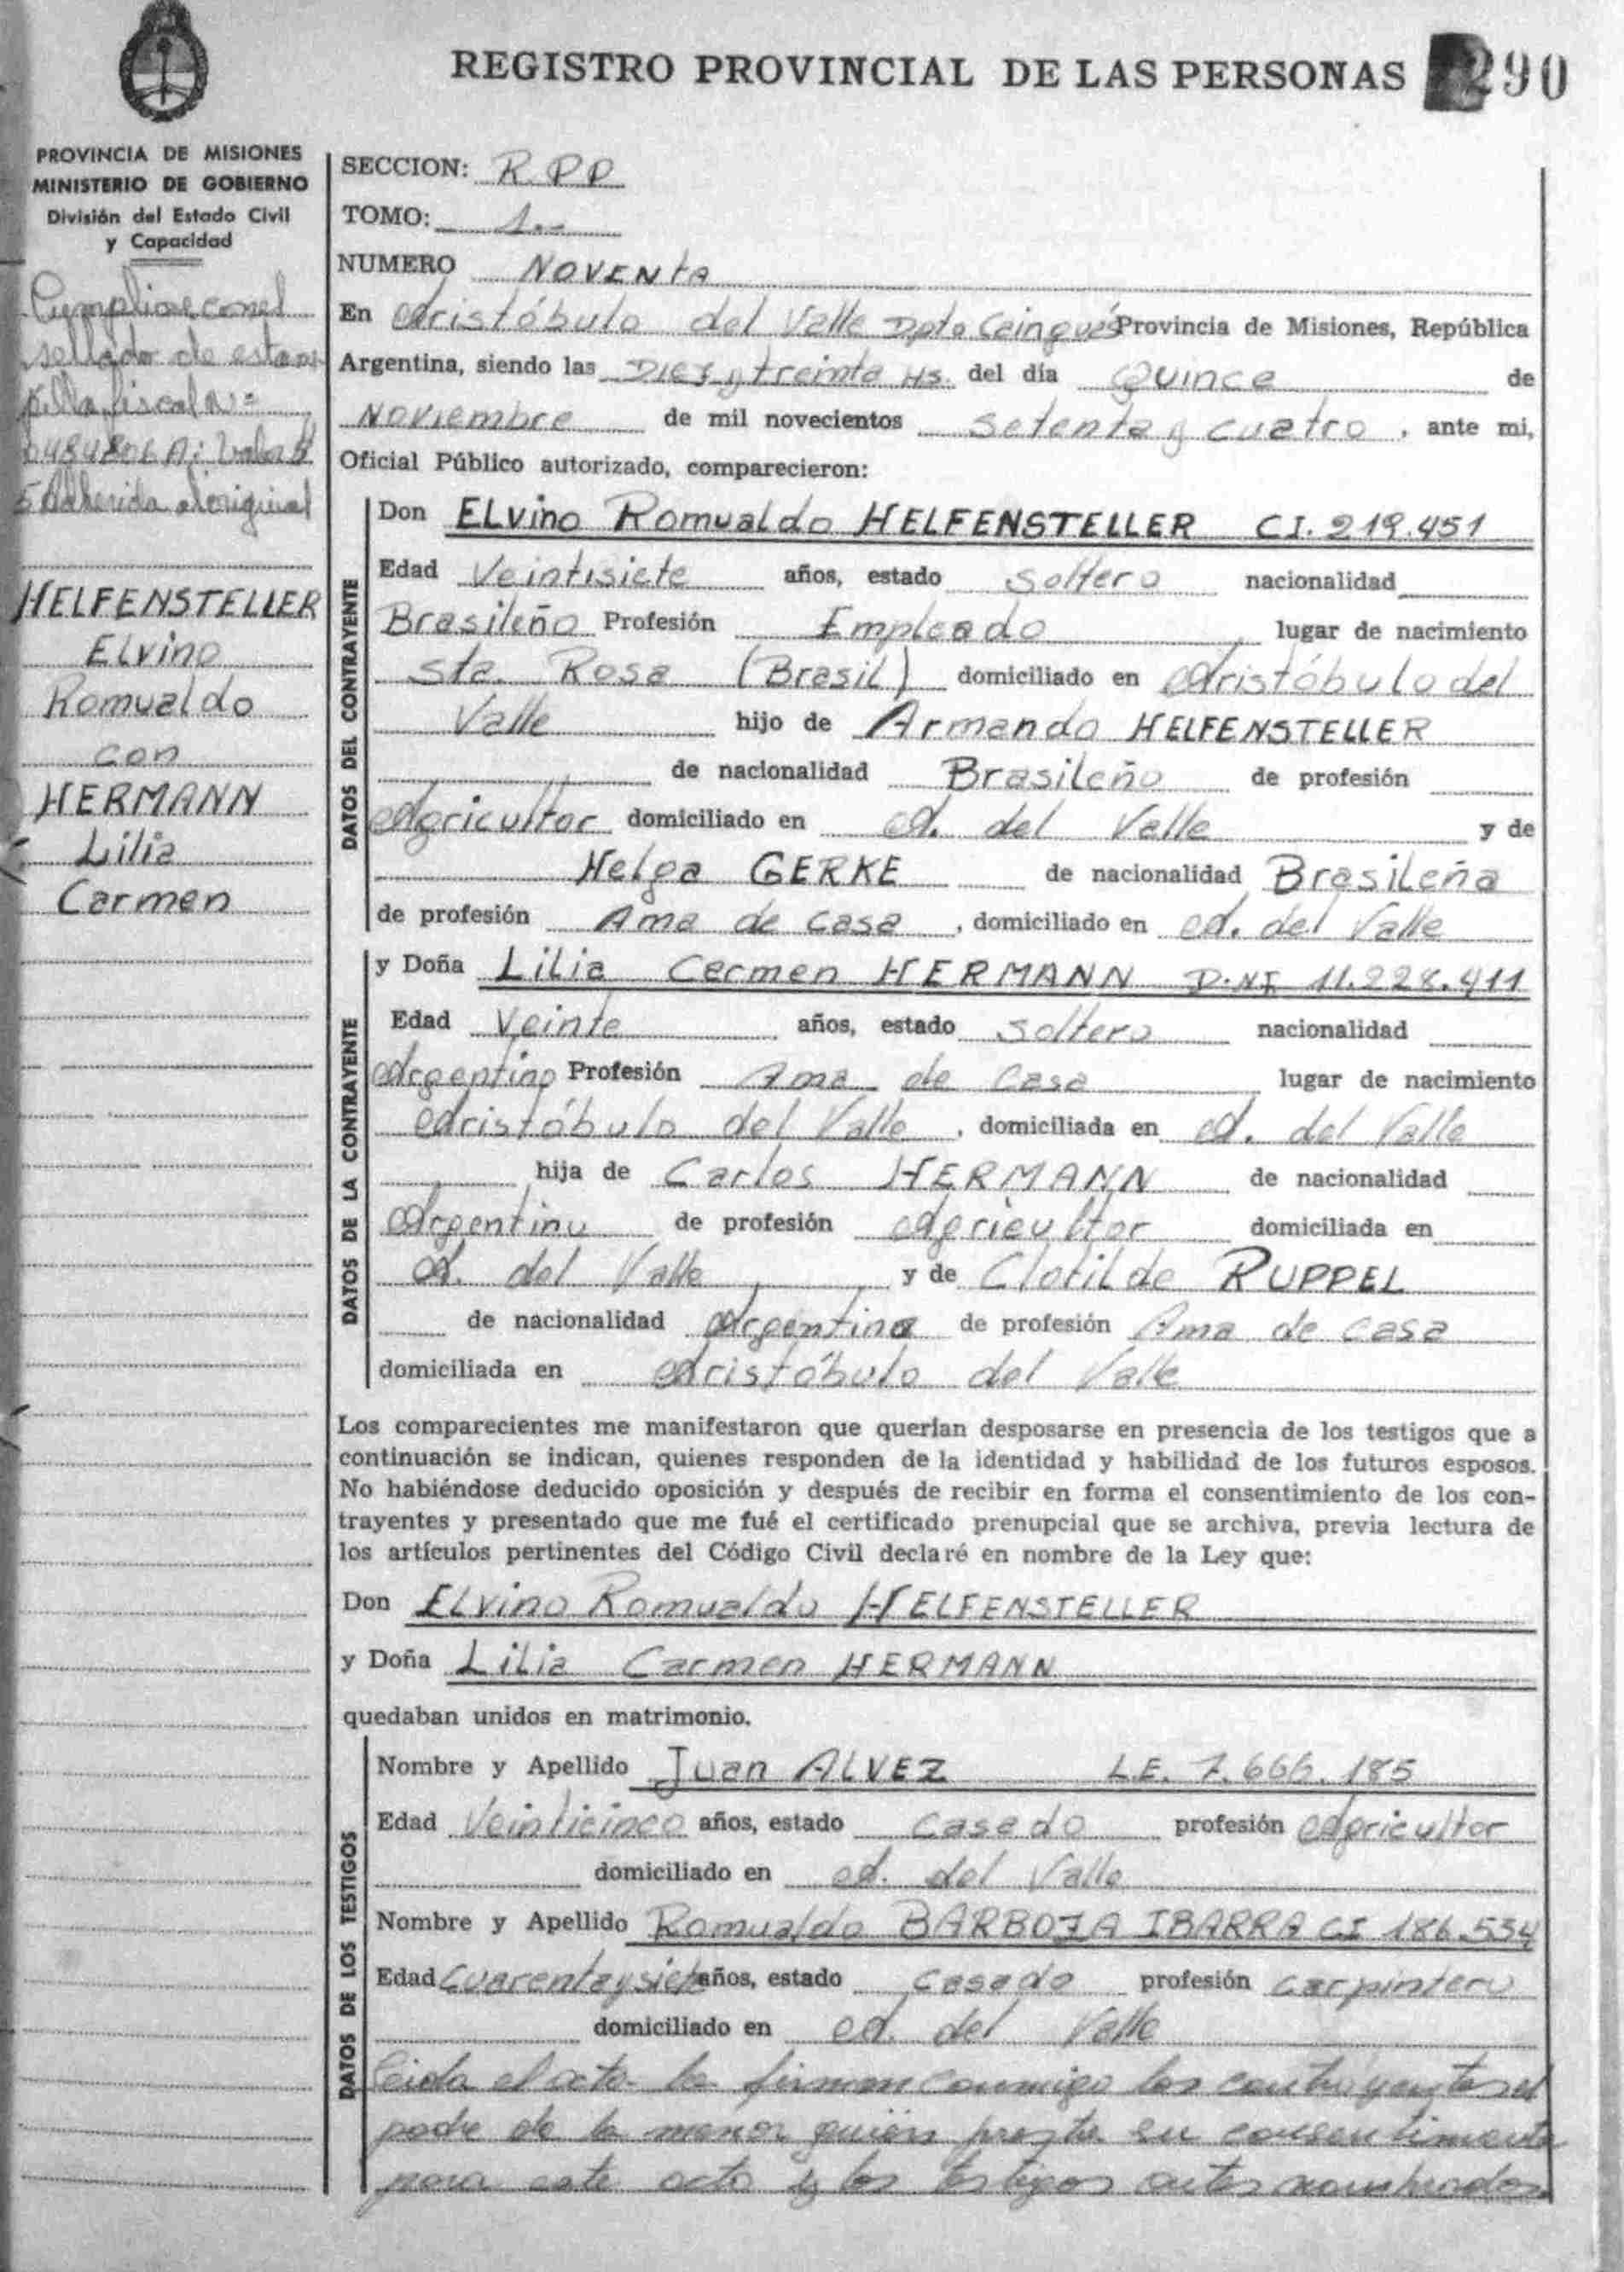 REGISTRO PROVINCIAL DE LAS PERSONAS 290
PROVINCIA DE MISIONES
MINISTERIO DE GOBIERNO
División del Estado Civil
y Capacidad
Cumpliose con el
sellado de estam
pilla fiscal Nº
0484806 A: Valor $
5 Adherida al original
HELFENSTELLER
Elvino
Romualdo
con
HERMANN
Lilia
Carmen
SECCION: R.P.P
TOMO: 1.-
NUMERO NOVENTA
En Aristóbulo del Valle Dpto Cainguás Provincia de Misiones, República
Argentina, siendo las Diez y treinta Hs. del día Quince de
Noviembre de mil novecientos setenta y cuatro, ante mi,
Oficial Público autorizado, comparecieron:
DATOS DEL CONTRAYENTE
Don Elvino Romualdo HELFENSTELLER CI. 219.451
Edad Veintisiete años, estado soltero nacionalidad
Brasileño Profesión Empleado lugar de nacimiento
Sta. Rosa (Brasil) domiciliado en Aristóbulo del
Valle hijo de Armando HELFENSTELLER
de nacionalidad Brasileño de profesión
Agricultor domiciliado en A. del Valle y de
Helga GERKE de nacionalidad Brasileña
de profesión Ama de casa, domiciliado en A. del Valle
DATOS DE LA CONTRAYENTE
y Doña Lilia Carmen HERMANN D.NI 11.228.411
Edad Veinte años, estado soltero nacionalidad
Argentino Profesión Ama de casa lugar de nacimiento
Aristóbulo del Valle, domiciliada en A. del Valle
hija de Carlos HERMANN de nacionalidad
Argentino de profesión Agricultor domiciliada en
A. del Valle y de Clotilde RUPPEL
de nacionalidad Argentina de profesión Ama de casa
domiciliada en Aristóbulo del Valle
Los comparecientes me manifestaron que querían desposarse en presencia de los testigos que a
continuación se indican, quienes responden de la identidad y habilidad de los futuros esposos.
No habiéndose deducido oposición y después de recibir en forma el consentimiento de los con-
trayentes y presentado que me fué el certificado prenupcial que se archiva, previa lectura de
los artículos pertinentes del Código Civil declaré en nombre de la Ley que:
Don Elvino Romualdo HELFENSTELLER
y Doña Lilia Carmen HERMANN
quedaban unidos en matrimonio.
DATOS DE LOS TESTIGOS
Nombre y Apellido Juan ALVEZ L.E. 7.666.185
Edad Veinticinco años, estado casado profesión Agricultor
domiciliado en A. del Valle
Nombre y Apellido Romualdo BARBOZA IBARRA CI 186.534
Edad Cuarenta y siete años, estado casado profesión carpintero
domiciliado en A. del Valle
Leida el acta la firman conmigo los contrayentes el
padre de la menor quien presta su consentimiento
para este acto y los testigos antes nombrados.